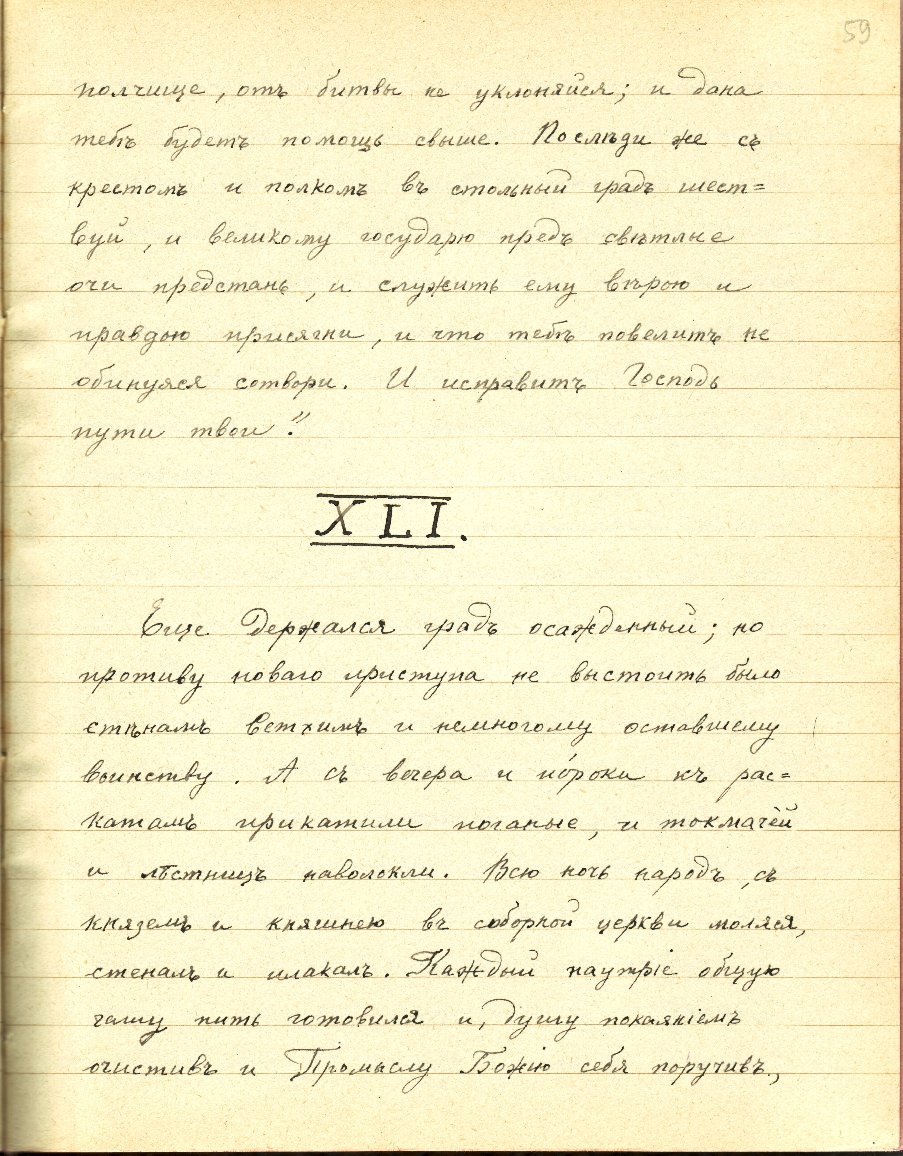 59
полчище, отъ битвы не уклоняйся; и дана
тебѣ будетъ помощь свыше. Послѣди же съ
крестомъ и полкомъ въ стольный градъ шест=
вуй, и великому государю предъ свѣтлые
очи предстань, и служить ему вѣрою и
правдою присягни, и что тебѣ повелитъ не
обинуяся сотвори. И исправитъ Господь
пути твои."
XLI.
Еще держался градъ осажденный; но
противу новаго приступа не выстоить было
стѣнамъ ветхимъ и немногому оставшему
воинству. А съ вечера и по́роки къ рас=
катамъ прикатили поганые, и токмачей
и лѣстницъ наволокли. Всю ночь народъ, съ
княземъ и княгинею въ соборной церкви моляся,
стеналъ и плакалъ. Каждый наутріе общую
чашу пить готовился и, душу покаяніемъ
очистивъ и Промыслу Божію себя поручивъ,